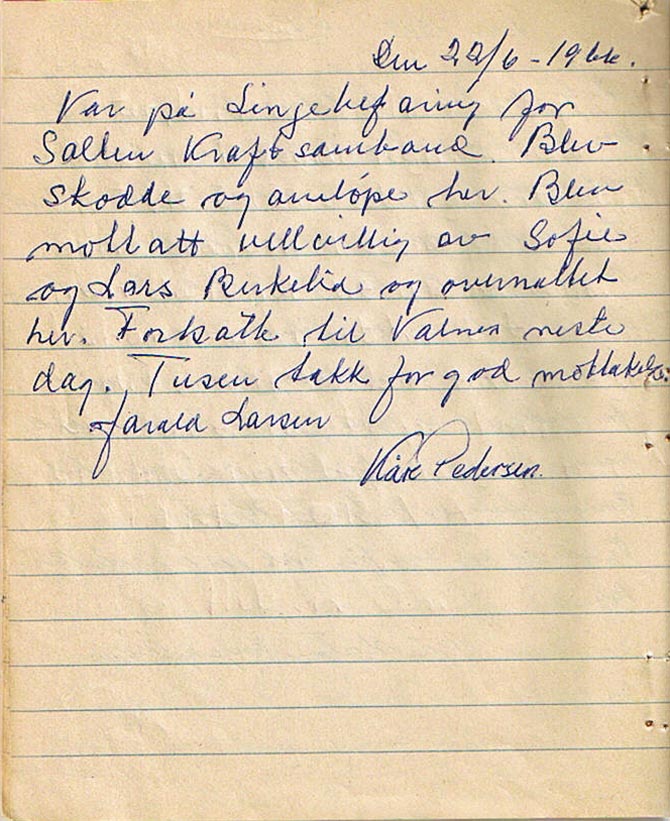 Den 22/6 - 1966.
Var på Lingebefaring for
Salten Kraftsamband. Blev
skodde og anløpe her. Blev
mottatt vellvillig av Sofie
og Lars Birkelid og overnattet
her. Fortsatte til Valnes neste
dag. Tusen takk for god mottakelse.
Harald Larsen
Kåre Pedersen.